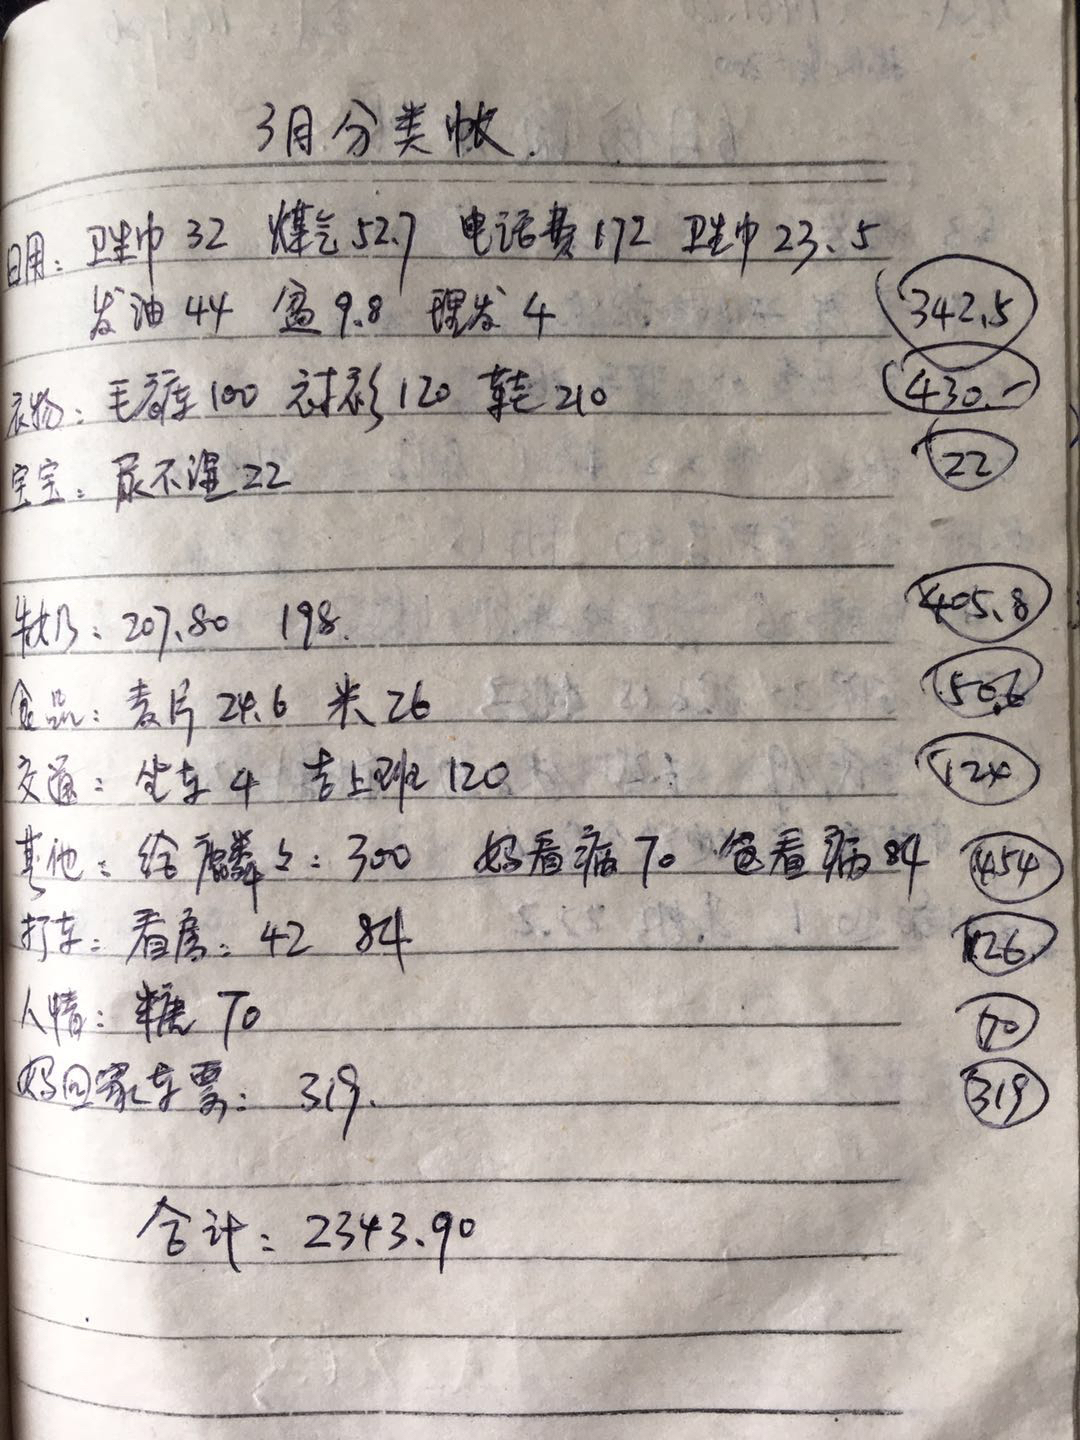 3月分类帐
日用: 卫生巾 32 煤气 52.7 电话费 172 卫生巾 23.5
发油 44 盆 9.8 理发 4 342.5
衣物: 毛裤 100 衬衫 120 鞋 210 430.-
宝宝: 尿不湿 22 22
牛奶: 207.80 198. 405.8
食品: 麦片 24.6 米 26 50.6
交通: 坐车 4 去上班 120 124
其他: 给麟々: 300 妈看病 70 爸看病 84 454
打车: 看房: 42 84 126
人情: 糖 70 70
妈回家车票: 319. 319
合计: 2343.90